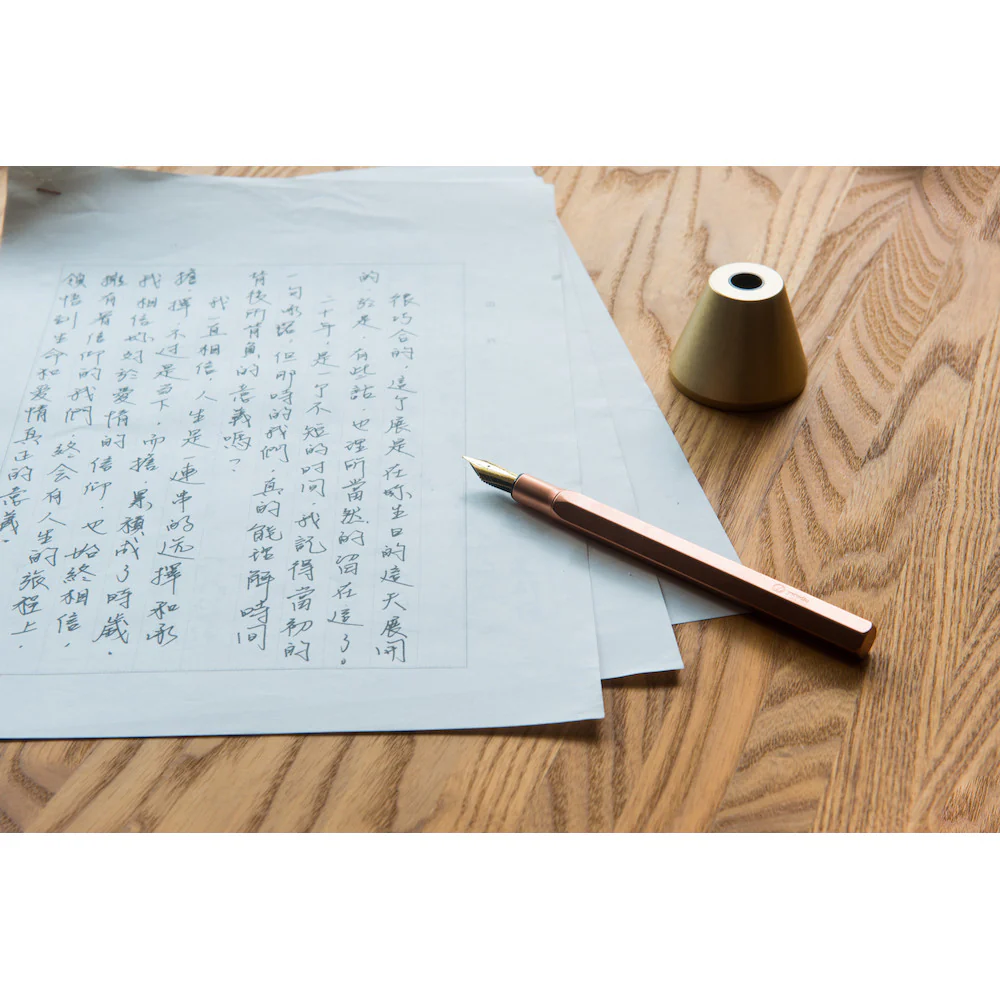 很巧合的，這个展是在你生日的這天展開
的
於是，有些話，也理所當然的留在這了。
二十年，是一个不短的时间，我記得當初的
一句承諾，但那時的我們，真的能理解時间
背後所背負的意義嗎？
我一直相信，人生是一連串的选擇和承
擔，擇，不过是当下，而擔，累積成了時歲。
我相信妳对於愛情的信仰，也始終相信，
擁有着信仰的我們，終会有人生的旅程上，
領悟到生命和爱情真正的意義。